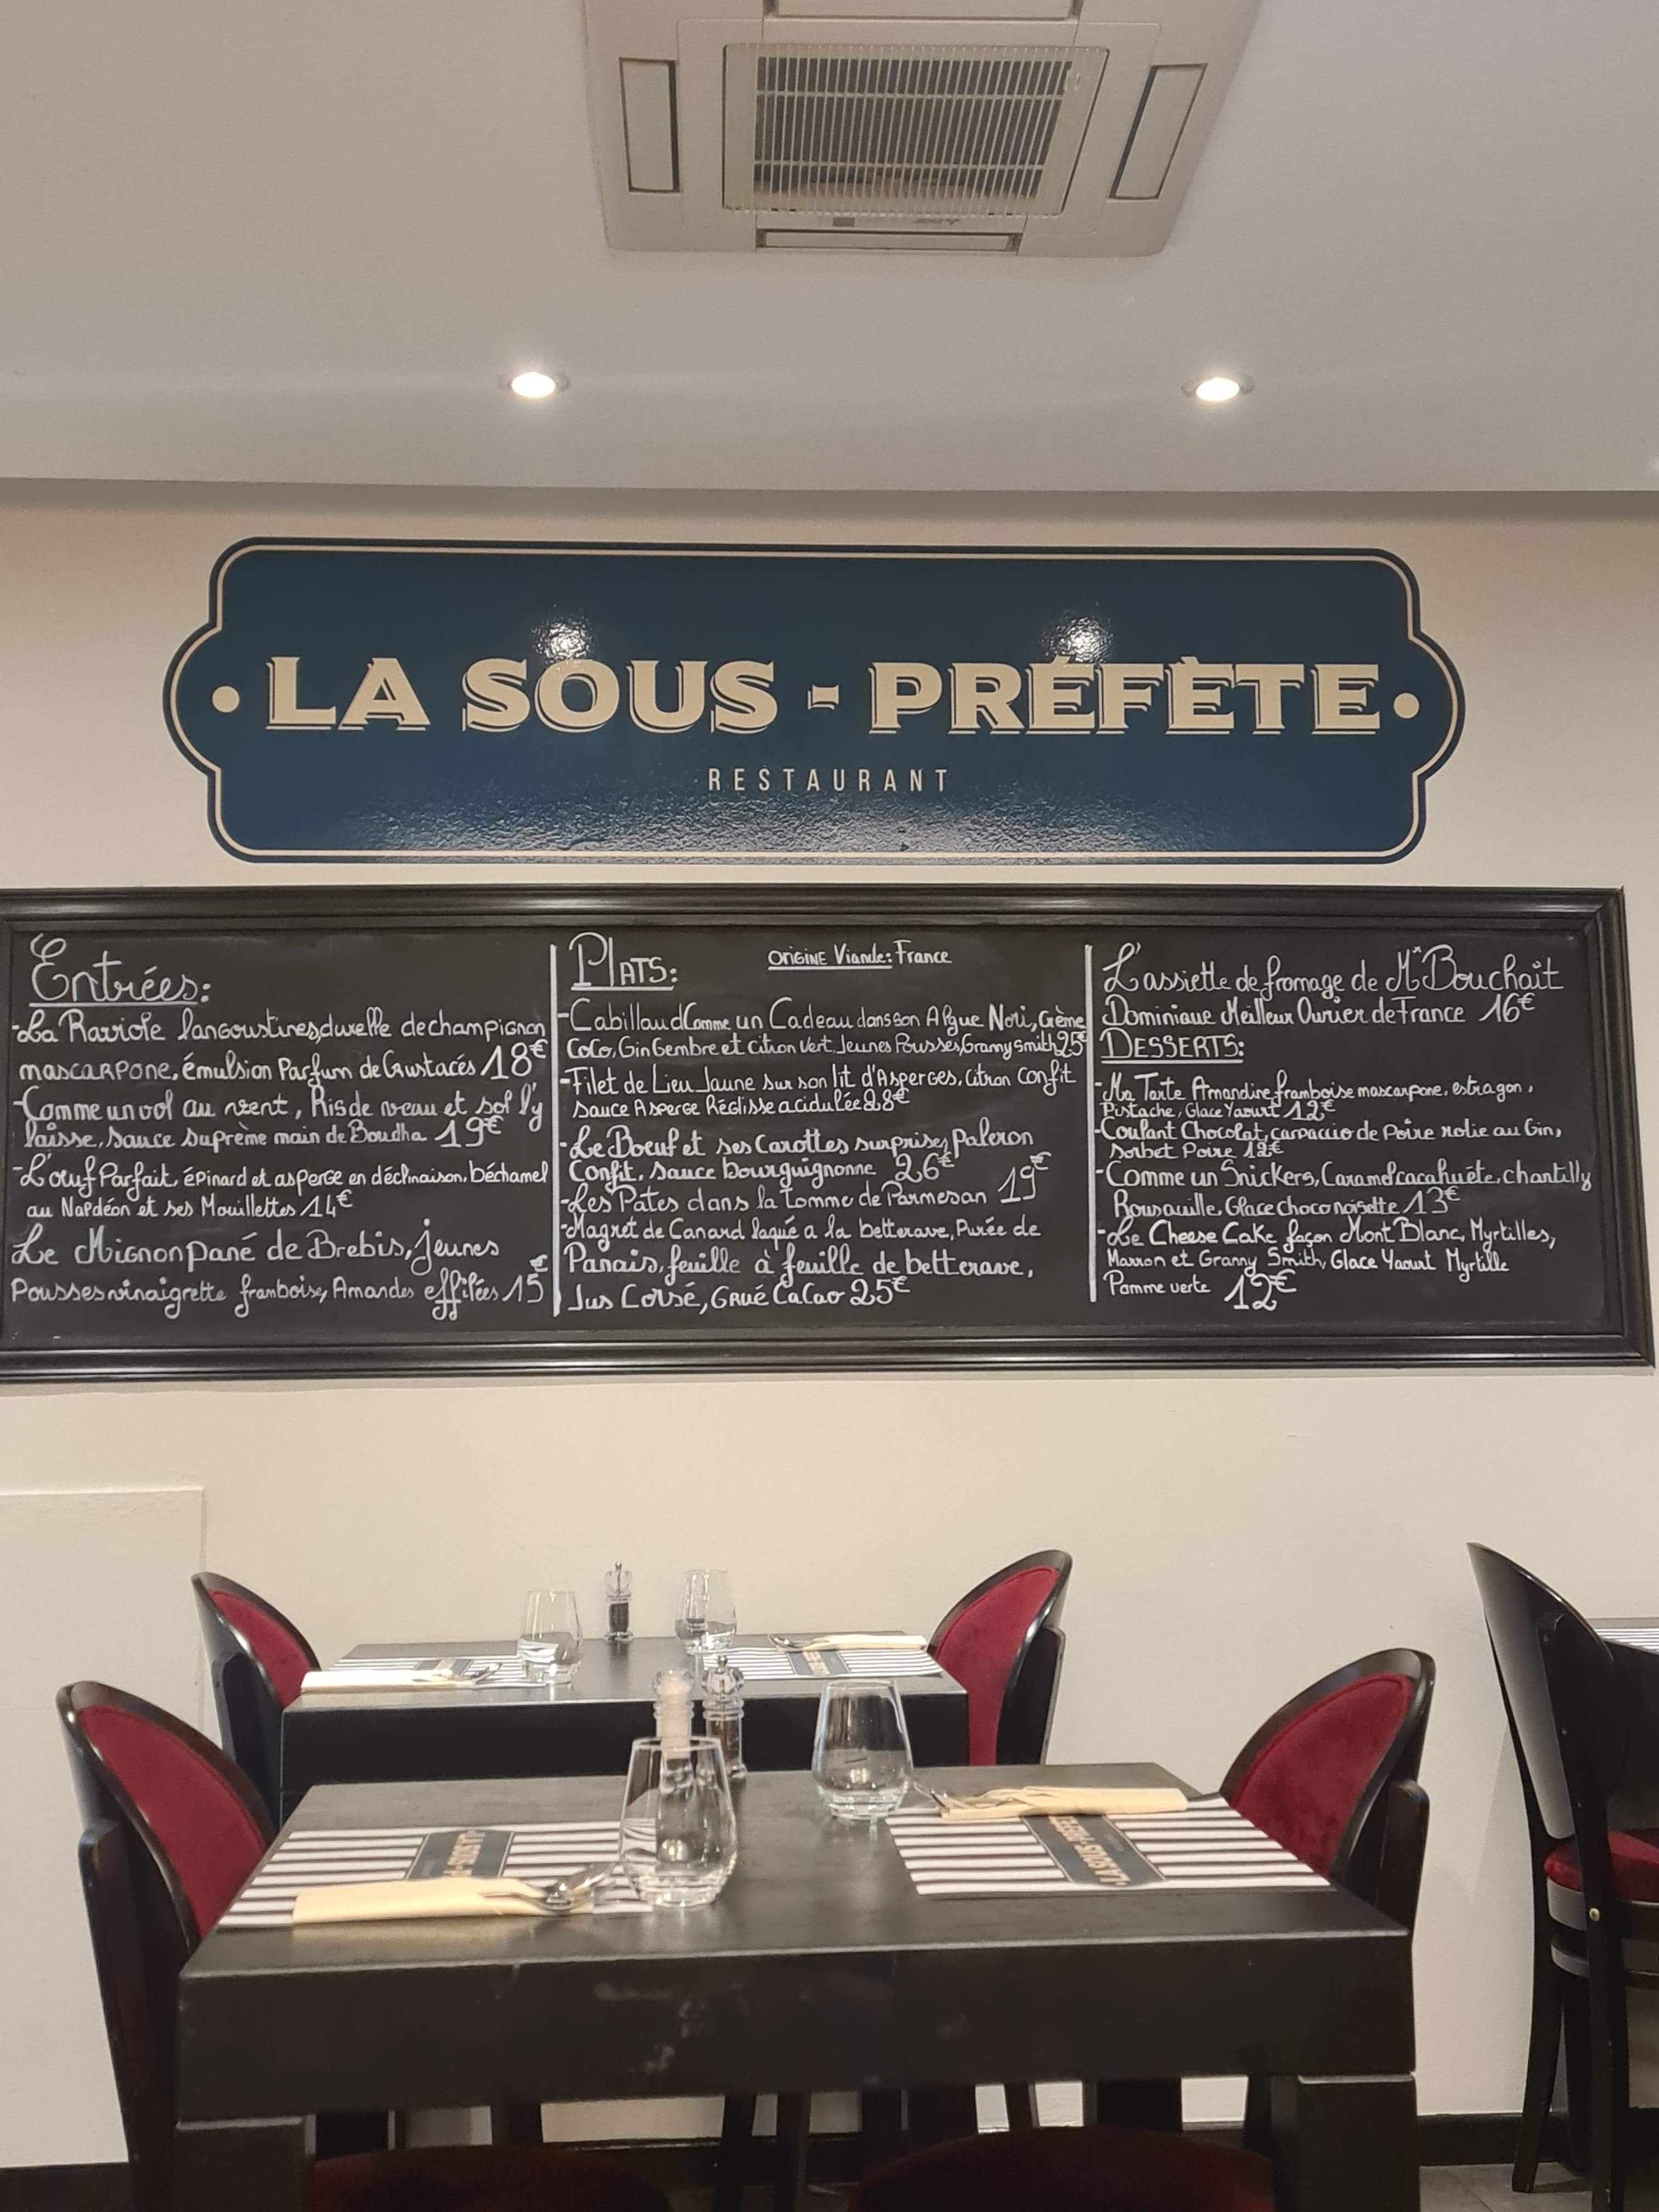 LA SOUS - PRÉFÈTE
RESTAURANT
Entrées:
-La Raviole langoustines, duxelle de champignon
mascarpone, émulsion Parfum de Crustacés 18€
-Comme un vol au vent, Ris de veau et sot l'y
laisse, sauce Suprème main de Boudha 19€
-L'œuf Parfait, épinard et asperge en déclinaison, béchamel
au Napdéon et ses Mouillettes 14€
Le Mignon pané de Brebis, jeunes
Pousses vinaigrette framboise, Amandes effilées 15€
PLATS:
ORIGINE Viande: France
-Cabillaud Comme un Cadeau dans son Algue Nori, Crème
Coco, Gingembre et citron vert, Jeunes Pousses, Granny smith 25€
-Filet de Lieu Jaune sur son lit d'Asperges, Citron Confit
Sauce Asperge Réglisse acidulée 28€
-Le Bœuf et ses Carottes surprises, Paleron
Confit, Sauce bourguignonne 26€
-Les Pâtes dans la tomme de Parmesan 19€
-Magret de Canard laqué a la betterave, Purée de
Panais, feuille à feuille de betterave,
Jus Corsé, Grué Cacao 25€
L'assiette de fromage de Mr Bouchait
Dominique Meilleur Ouvrier de France 16€
DESSERTS:
-Ma Tarte Amandine framboise mascarpone, estragon,
Pistache, Glace Yaourt 12€
-Coulant Chocolat, carpaccio de Poire rotie au Gin,
Sorbet Poire 12€
-Comme un Snickers, Caramel cacahuète, chantilly
Glace choco noisette 13€
-Le Cheese Cake façon Mont Blanc, Myrtilles,
Marron et Granny Smith, Glace Yaourt Myrtille
Pomme verte 12€